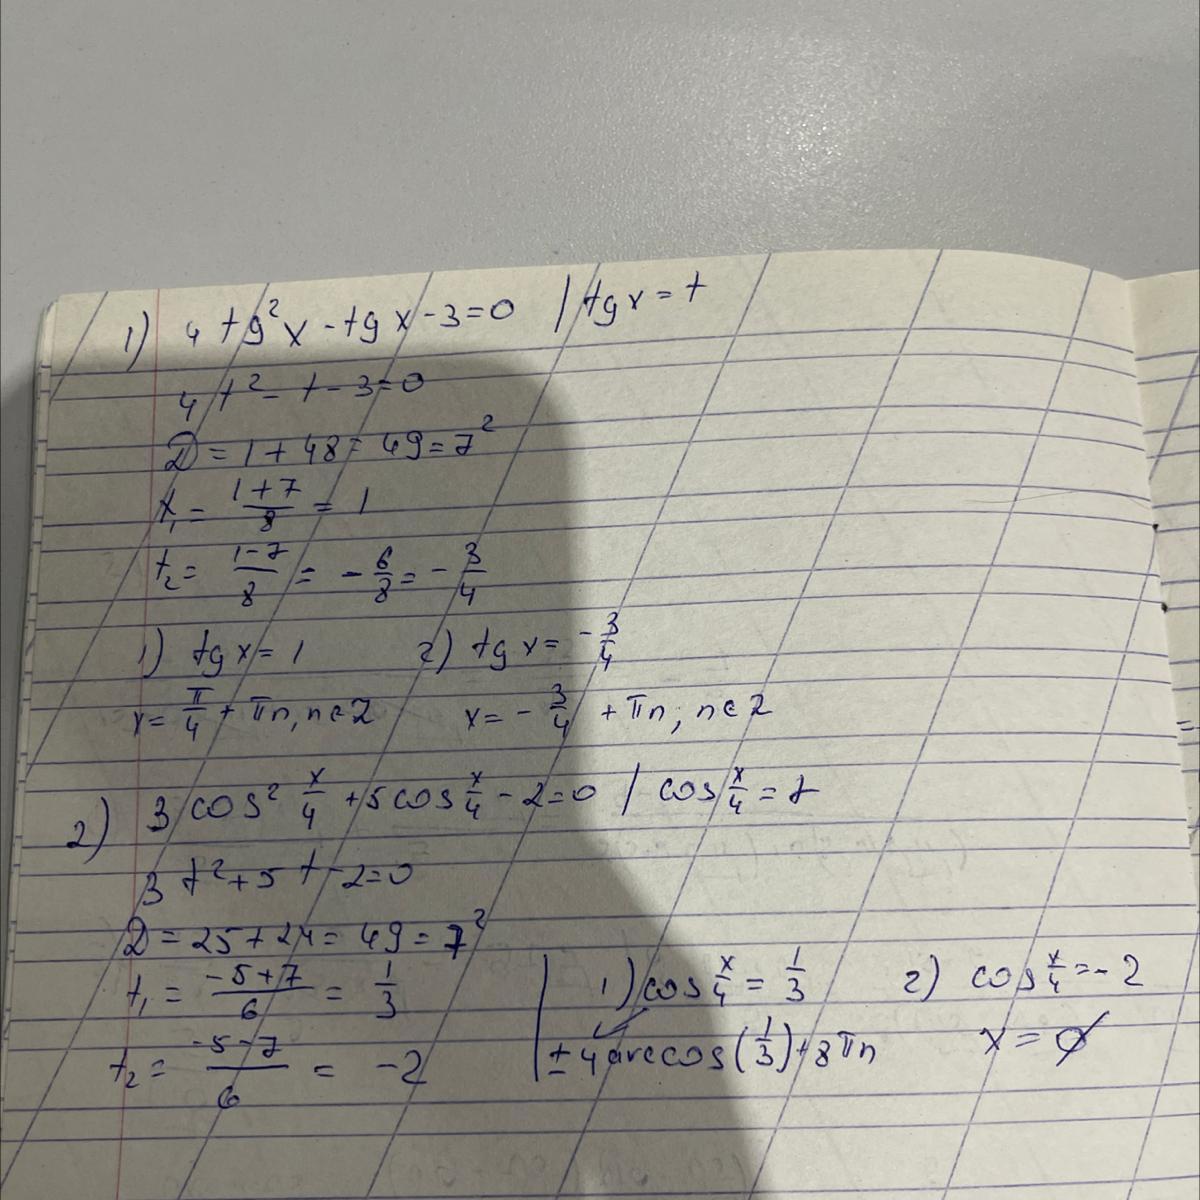 1) 4 tg² x - tg x - 3 = 0 | tg x = t
4 t² - t - 3 = 0
D = 1 + 48 = 49 = 7²
t₁ = (1+7)/8 = 1
t₂ = (1-7)/8 = - 6/8 = - 3/4
1) tg x = 1 2) tg x = - 3/4
x = π/4 + πn, n ∈ Z x = - 3/4 + πn; n ∈ Z
2) 3 cos² x/4 + 5 cos x/4 - 2 = 0 | cos x/4 = t
3 t² + 5 t - 2 = 0
D = 25 + 24 = 49 = 7²
t₁ = (-5+7)/6 = 1/3
t₂ = (-5-7)/6 = -2
1) cos x/4 = 1/3 2) cos x/4 = -2
± 4 arccos(1/3) + 8πn x = ∅